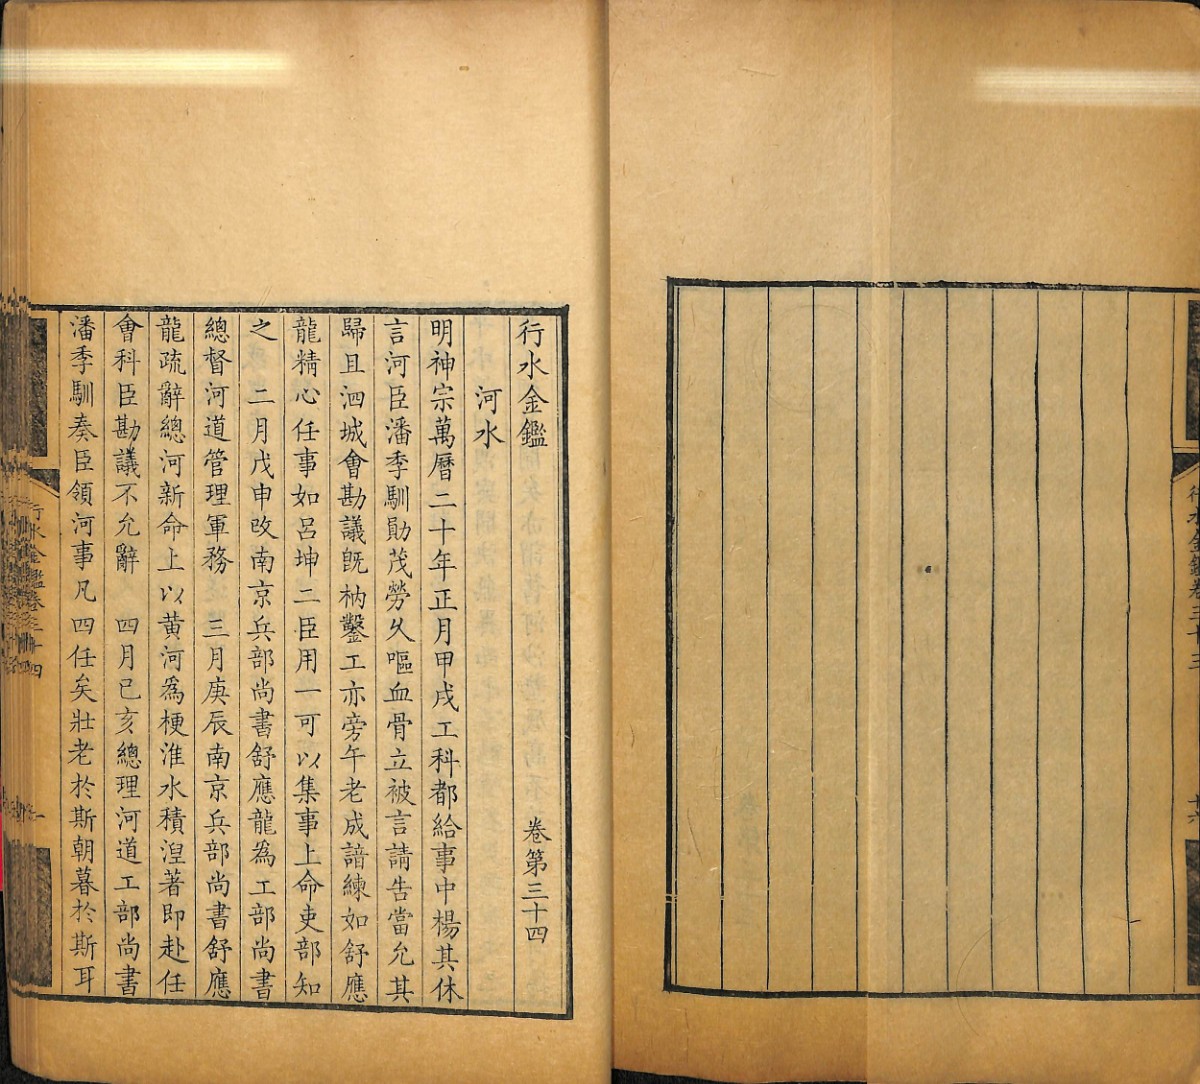 行水金鑑卷三十三
十六
行水金鑑 卷第三十四
河水
明神宗萬曆二十年正月甲戌工科都給事中楊其休
言河臣潘季馴勛茂勞久嘔血骨立被言請告當允其
歸且泗城會勘議旣枘鑿工亦旁午老成諳練如舒應
龍精心任事如呂坤二臣用一可以集事上命吏部知
之 二月戊申改南京兵部尚書舒應龍為工部尚書
總督河道管理軍務 三月庚辰南京兵部尚書舒應
龍疏辭總河新命上以黄河為梗淮水積湼著即赴任
會科臣勘議不允辭 四月己亥總理河道工部尚書
潘季馴奏臣領河事凡四任矣壯老於斯朝暮於斯耳
行水金鑑卷三十四
一